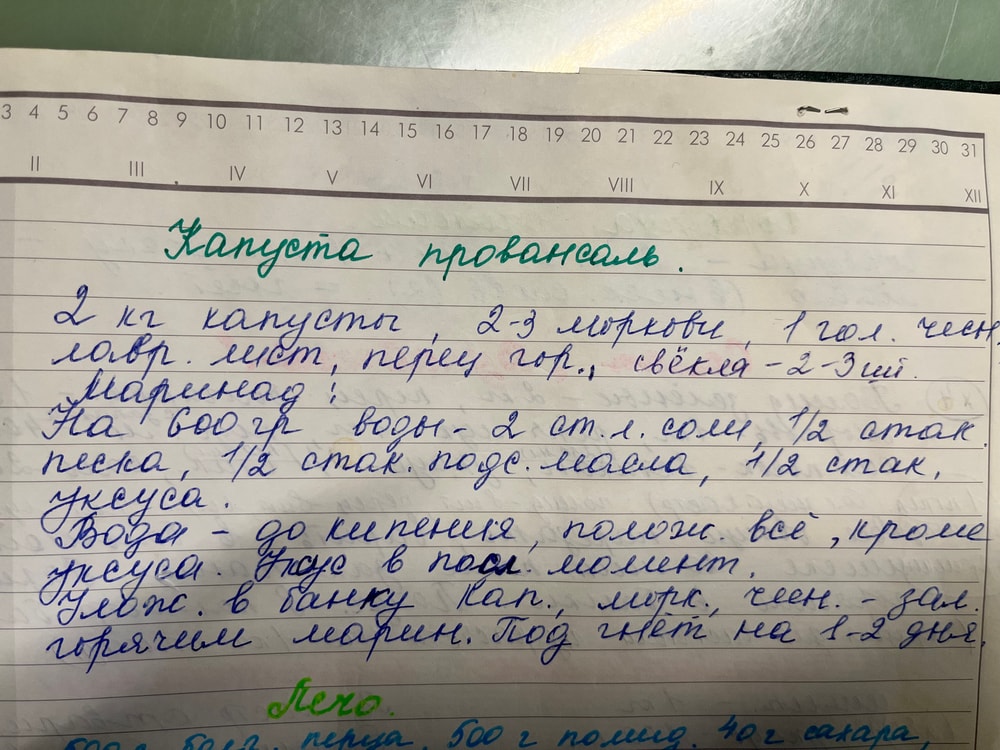 3 4 5 6 7 8 9 10 11 12 13 14 15 16 17 18 19 20 21 22 23 24 25 26 27 28 29 30 31
II III IV V VI VII VIII IX X XI XII
Капуста провансаль.
2 кг капусты, 2-3 моркови, 1 гол. чесн.
лавр. лист, перец гор., свёкла - 2-3 шт.
Маринад:
На 600 гр воды - 2 ст. л. соли, 1/2 стак.
песка, 1/2 стак. подс. масла, 1/2 стак.
уксуса.
Вода - до кипения, полож. всё, кроме
уксуса. Укус в посл. момент.
Улож. в банку кап., морк., чесн. - зал.
горячим марин. Под гнёт на 1-2 дня.
Лечо.
перца, 500 г помид. 40 г сахара,